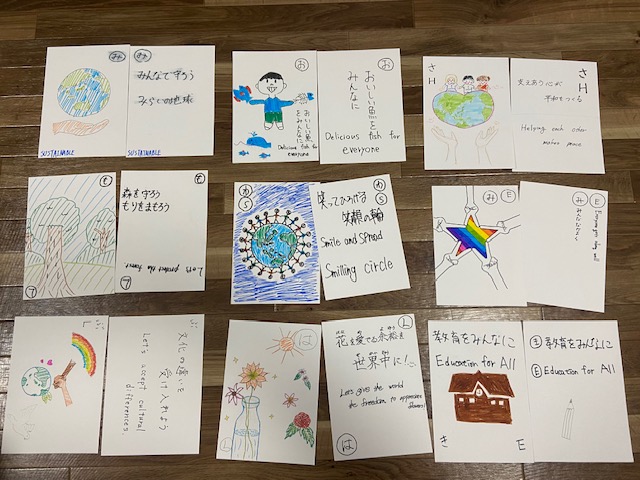 み
SUSTAINABLE
み
みんなで守ろう
みらいの地球
SUSTAINABLE
お
おいしい魚
をみんなに
Delicious fish for
everyone
おいしい魚を
みんなに
Delicious fish for
everyone
さ
H
さ
H
支えあう心が
平和をつくる
Helping each oder
makes peace.
も
T
も
森を守ろう
もりをまもろう
Let's protect the forest.
T
S
S
笑ってひろげる
笑顔の輪
Smile and Spread
Smiling circle
み E
み E
ぶ
L
ぶ
L
文化の違いを
受け入れよう
Let's accept cultural
differences.
は
L
L
花を愛でる余裕を
世界中に!
Let's give the world
the freedom to appreciate
flowers!
は
教育をみんなに
Education for All
き E
き 教育をみんなに
E Education for All